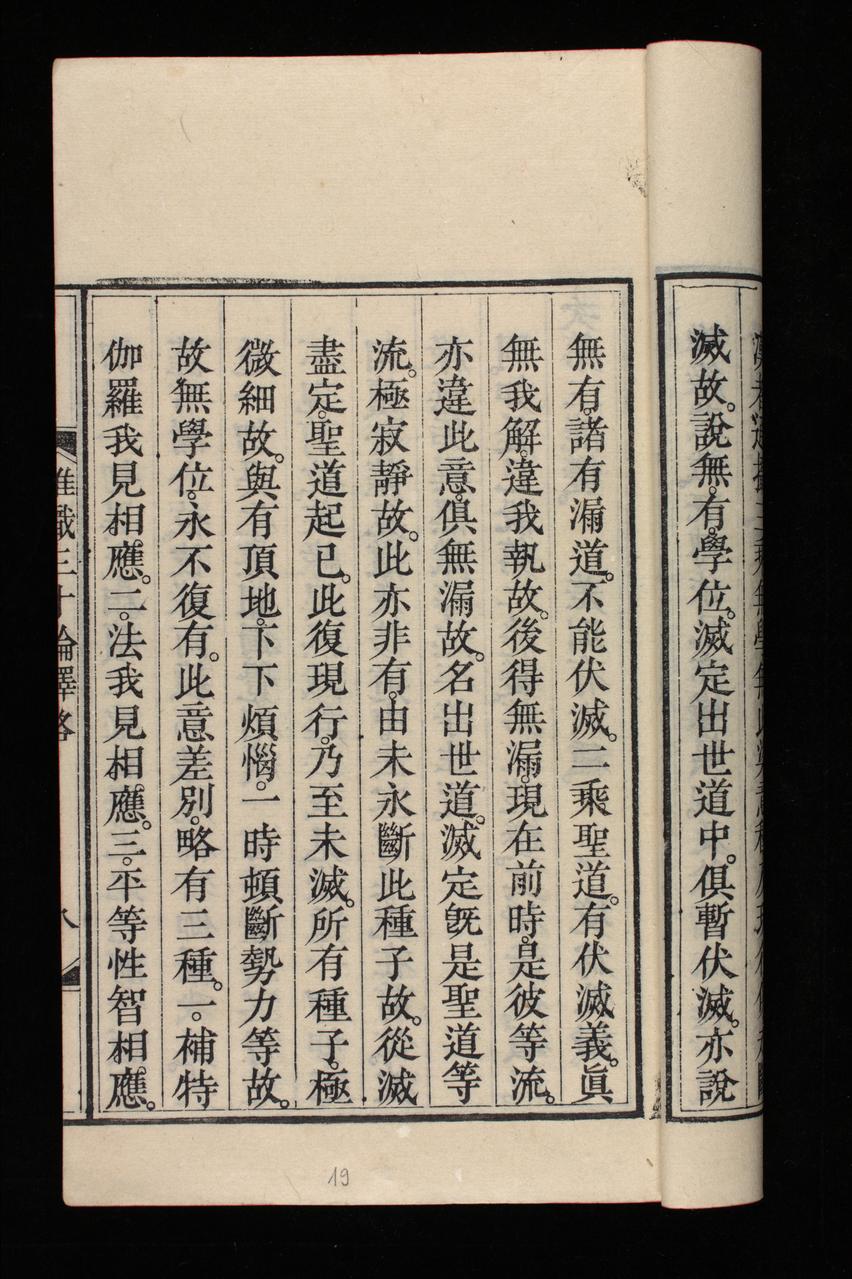 滅故。說無有。學位。滅定出世道中。俱暫伏滅。亦說
無有。諸有漏道。不能伏滅。二乘聖道。有伏滅義。眞
無我解。違我執故。後得無漏。現在前時。是彼等流。
亦違此意。俱無漏故。名出世道。滅定旣是聖道等
流。極寂靜故。此亦非有。由未永斷此種子故。從滅
盡定。聖道起已。此復現行。乃至未滅。所有種子。極
微細故。與有頂地。下下煩惱。一時頓斷。勢力等故。
故無學位。永不復有。此意差別。略有三種。一。補特
伽羅我見相應。二。法我見相應。三。平等性智相應。
唯識三十論釋略
八
19